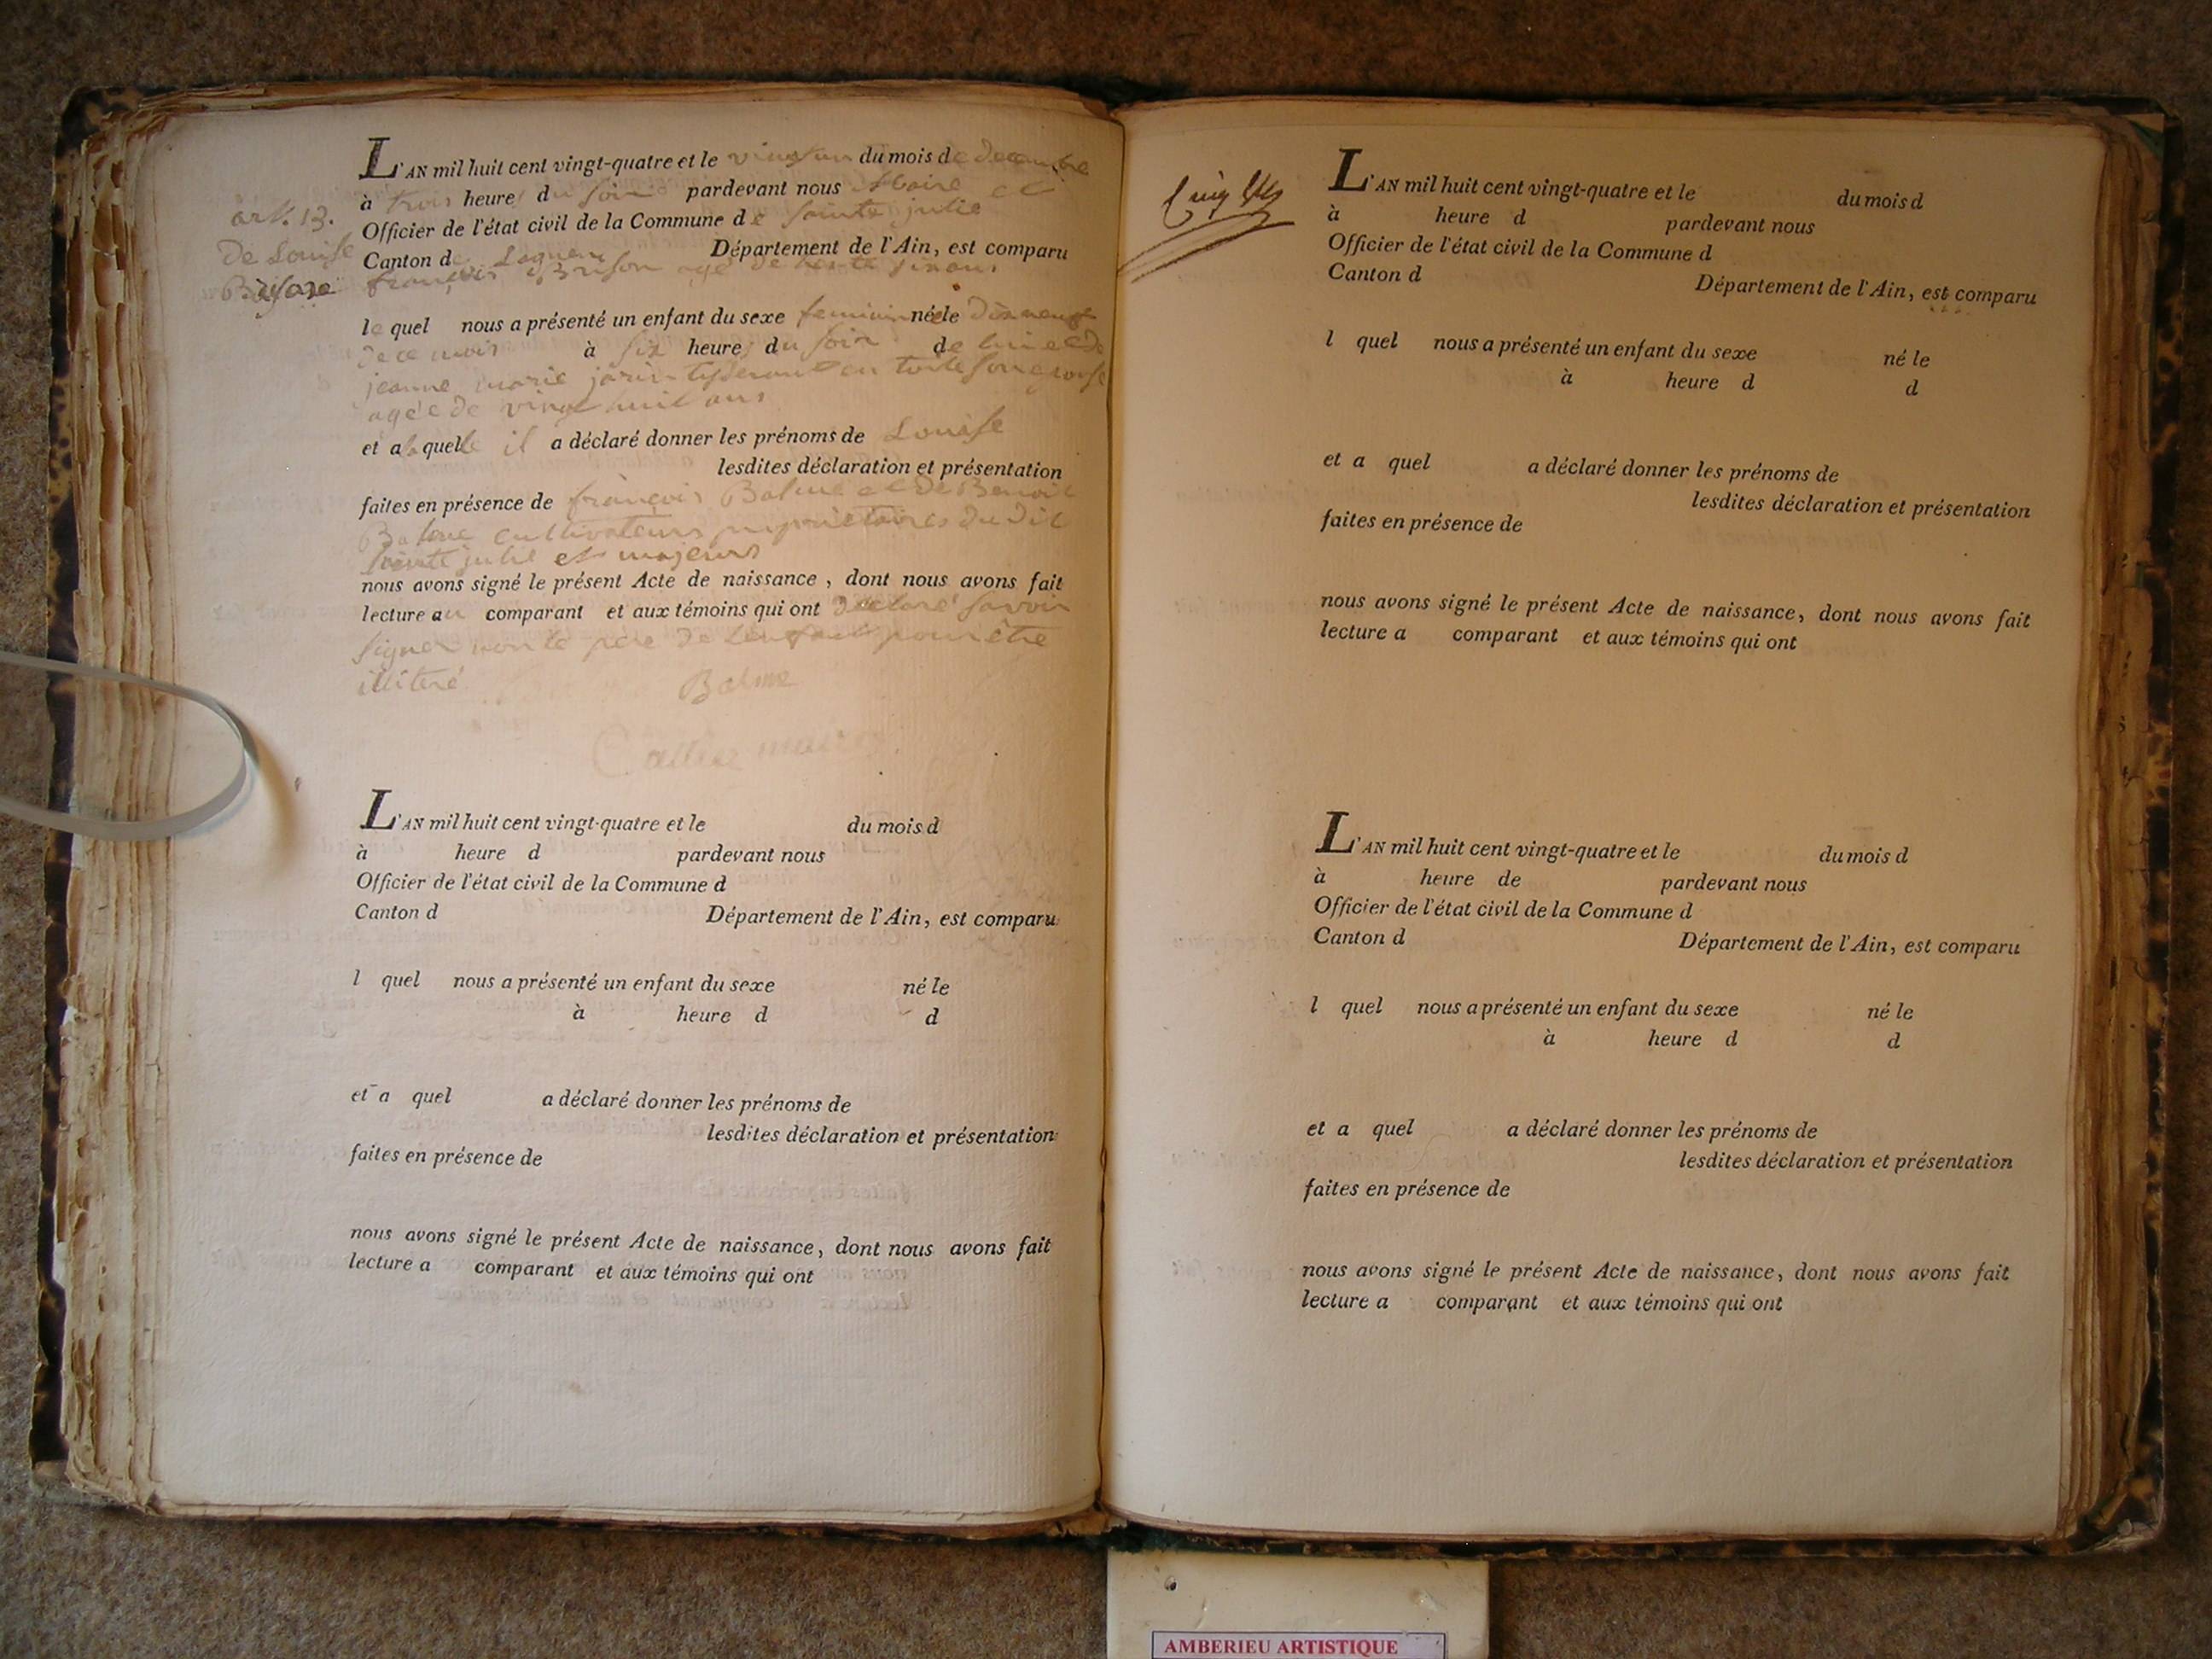 art. 13.
De Louise
Brison
L'AN mil huit cent vingt-quatre et le vingt un du mois de decembre
à trois heures du soir pardevant nous Maire et
Officier de l'état civil de la Commune de Sainte julie
Canton de Lagnieu Département de l'Ain, est comparu
françois Brison agé de trente six ans
le quel nous a présenté un enfant du sexe feminin née le Dix neuf
de ce mois à six heures du soir de lui et de
jeanne marie jarin tisserant en toile son epouse
agée de vingt huit ans
et a la quelle il a déclaré donner les prénoms de Louise
lesdites déclaration et présentation
faites en présence de françois Balme et de Benoit
Balme cultivateurs propriétaires du dit
Sainte julie et majeurs
nous avons signé le présent Acte de naissance, dont nous avons fait
lecture au comparant et aux témoins qui ont déclaré savoir
signer non le père de l'enfant pour être
illitéré
Balme
maire
L'AN mil huit cent vingt-quatre et le du mois d
à heure d pardevant nous
Officier de l'état civil de la Commune d
Canton d Département de l'Ain, est comparu
l quel nous a présenté un enfant du sexe né le
à heure d d
et a quel a déclaré donner les prénoms de
lesdites déclaration et présentation
faites en présence de
nous avons signé le présent Acte de naissance, dont nous avons fait
lecture a comparant et aux témoins qui ont
L'AN mil huit cent vingt-quatre et le du mois d
à heure d pardevant nous
Officier de l'état civil de la Commune d
Canton d Département de l'Ain, est comparu
l quel nous a présenté un enfant du sexe né le
à heure d d
et a quel a déclaré donner les prénoms de
lesdites déclaration et présentation
faites en présence de
nous avons signé le présent Acte de naissance, dont nous avons fait
lecture a comparant et aux témoins qui ont
L'AN mil huit cent vingt-quatre et le du mois d
à heure de pardevant nous
Officier de l'état civil de la Commune d
Canton d Département de l'Ain, est comparu
l quel nous a présenté un enfant du sexe né le
à heure d d
et a quel a déclaré donner les prénoms de
lesdites déclaration et présentation
faites en présence de
nous avons signé le présent Acte de naissance, dont nous avons fait
lecture a comparant et aux témoins qui ont
AMBERIEU ARTISTIQUE